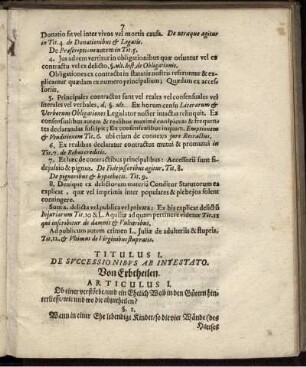 7
Donatio fit vel inter vivos vel mortis causa. De utraque agitur
in Tit. 4. de Donationibus & Legatis.
De Præscriptione autem in Tit. 5.
4. Jus ad rem vertitur in obligationibus quæ oriuntur vel ex
contractu vel ex delicto, §. ult. Inst. de Obligationib.
Obligationes ex contractu in statutis nostris referuntur & explicantur quædam ex numero principalium; Quædam ex accessoriis.
5. Principales contractus sunt vel reales vel consensuales vel
literales vel verbales, d. §. ult. Ex horum censu Literarum &
Verborum Obligationes Legislator noster intactas reliquit. Ex
consensualibus autem & quidem
tes declarandas suscipit; Ex consensualibus inquam, Emptionem
& Venditionem Tit. 6. ubi etiam de connexo jure Retractus.
6. Ex realibus declaratur contractus mutui & promutui in
Tit. 7. de Rebus creditis.
7. Et hæc de contractibus principalibus: Accessorii sunt fidejussio & pignus. De Fidejussoribus agitur, Tit. 8.
De pignoribus & hypothecis Tit. 9.
8. Denique ex delictorum materiâ Conditor Statutorum ea
explicat, quæ vel inprimis inter populares & plebejos solent
contingere.
Sunt a. delicta vel publica vel privata: Ex his explicat delictū
Injuriarum Tit. 10. & L. Aquiliæ ad quam pertinere videtur Tit. 11.
qui inscribitur de damnis & Vulneribus.
Ad publicum autem crimen L. Julia de adulteriis & stupris,
Tit. 12. & Ultimus de Virginibus stupratis.
TITULUS I.
DE SUCCESSIONIBUS AB INTESTATO.
Von Erbtheilen.
ARTICULUS I.
Ob einer verstürbe, und ein Ehelich Weib in den Gütern hinterliesse, wie und wo die abzutheilen?
§. 1.
Wann in einer Ehe lebendige Kinder, so die vier Wände (des
Hauses